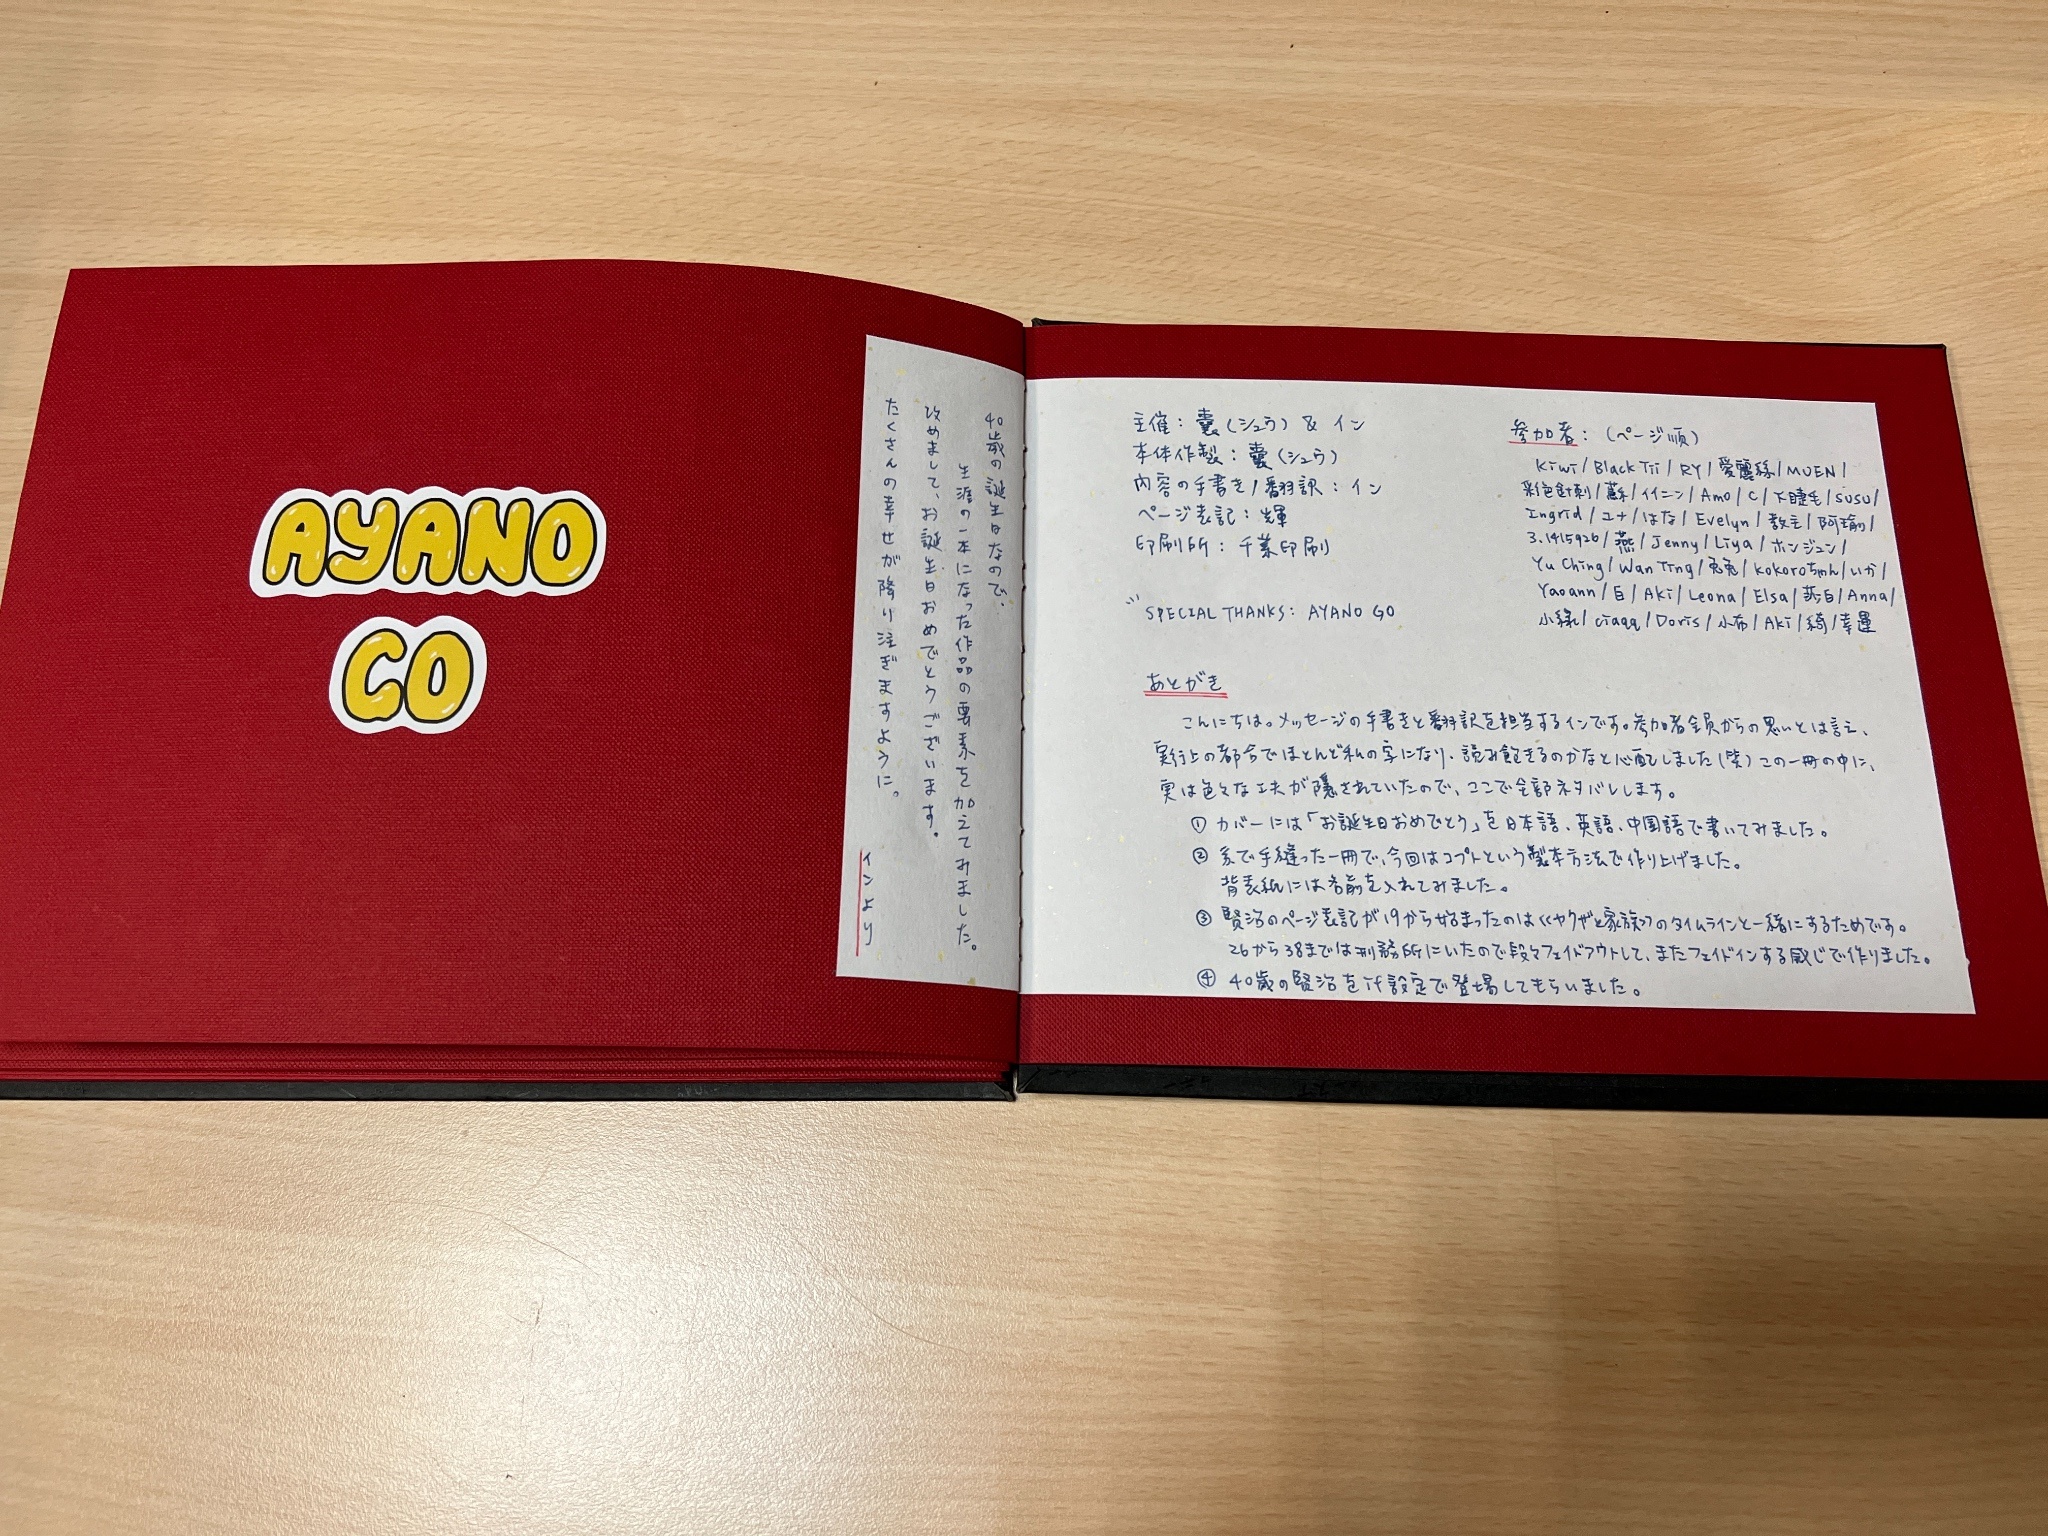 AYANO
CO
40歳の誕生日なので、
生涯の一本になった作品の要素を加えてみました。
改めまして、お誕生日おめでとうございます。
たくさんの幸せが降り注ぎますように。
インより
主催：囊(シュウ) & イン
本体作製：囊(シュウ)
内容の手書き/翻訳：イン
ページ表記：輝
印刷所：千葉印刷
SPECIAL THANKS: AYANO GO
参加者：(ページ順)
Kiwi/Black Tii/RY/愛麗絲/MUEN/
彩色針刺/蘇/イイニン/Amo/C/下睫毛/SUSU/
Ingrid/ユナ/はな/Evelyn/教主/阿瑜/
3.1415926/燕/Jenny/Liya/ホンジュン/
Yu Ching/Wan Ting/兎兎/kokoroちゃん/いか/
Yaoann/白/Aki/Leona/Elsa/莎白/Anna/
小緑/ciaqq/Doris/小布/Aki/綺/幸運
あとがき
こんにちは。メッセージの手書きと翻訳を担当するインです。参加者全員からの思いとは言え、
実行上の都合でほとんど私の字になり、読み飽きるのかなと心配しました(笑)この一冊の中に、
実は色々な工夫が隠されていたので、ここで全部ネタバレします。
① カバーには「お誕生日おめでとう」を日本語、英語、中国語で書いてみました。
② 糸で手縫った一冊で、今回はコプトという製本方法で作り上げました。
背表紙には名前を入れてみました。
③ 賢治のページ表記が19から始まったのは≪ヤクザと家族≫のタイムラインと一緒にするためです。
26から38までは刑務所にいたので段々フェイドアウトして、またフェイドインする感じで作りました。
④ 40歳の賢治をif設定で登場してもらいました。